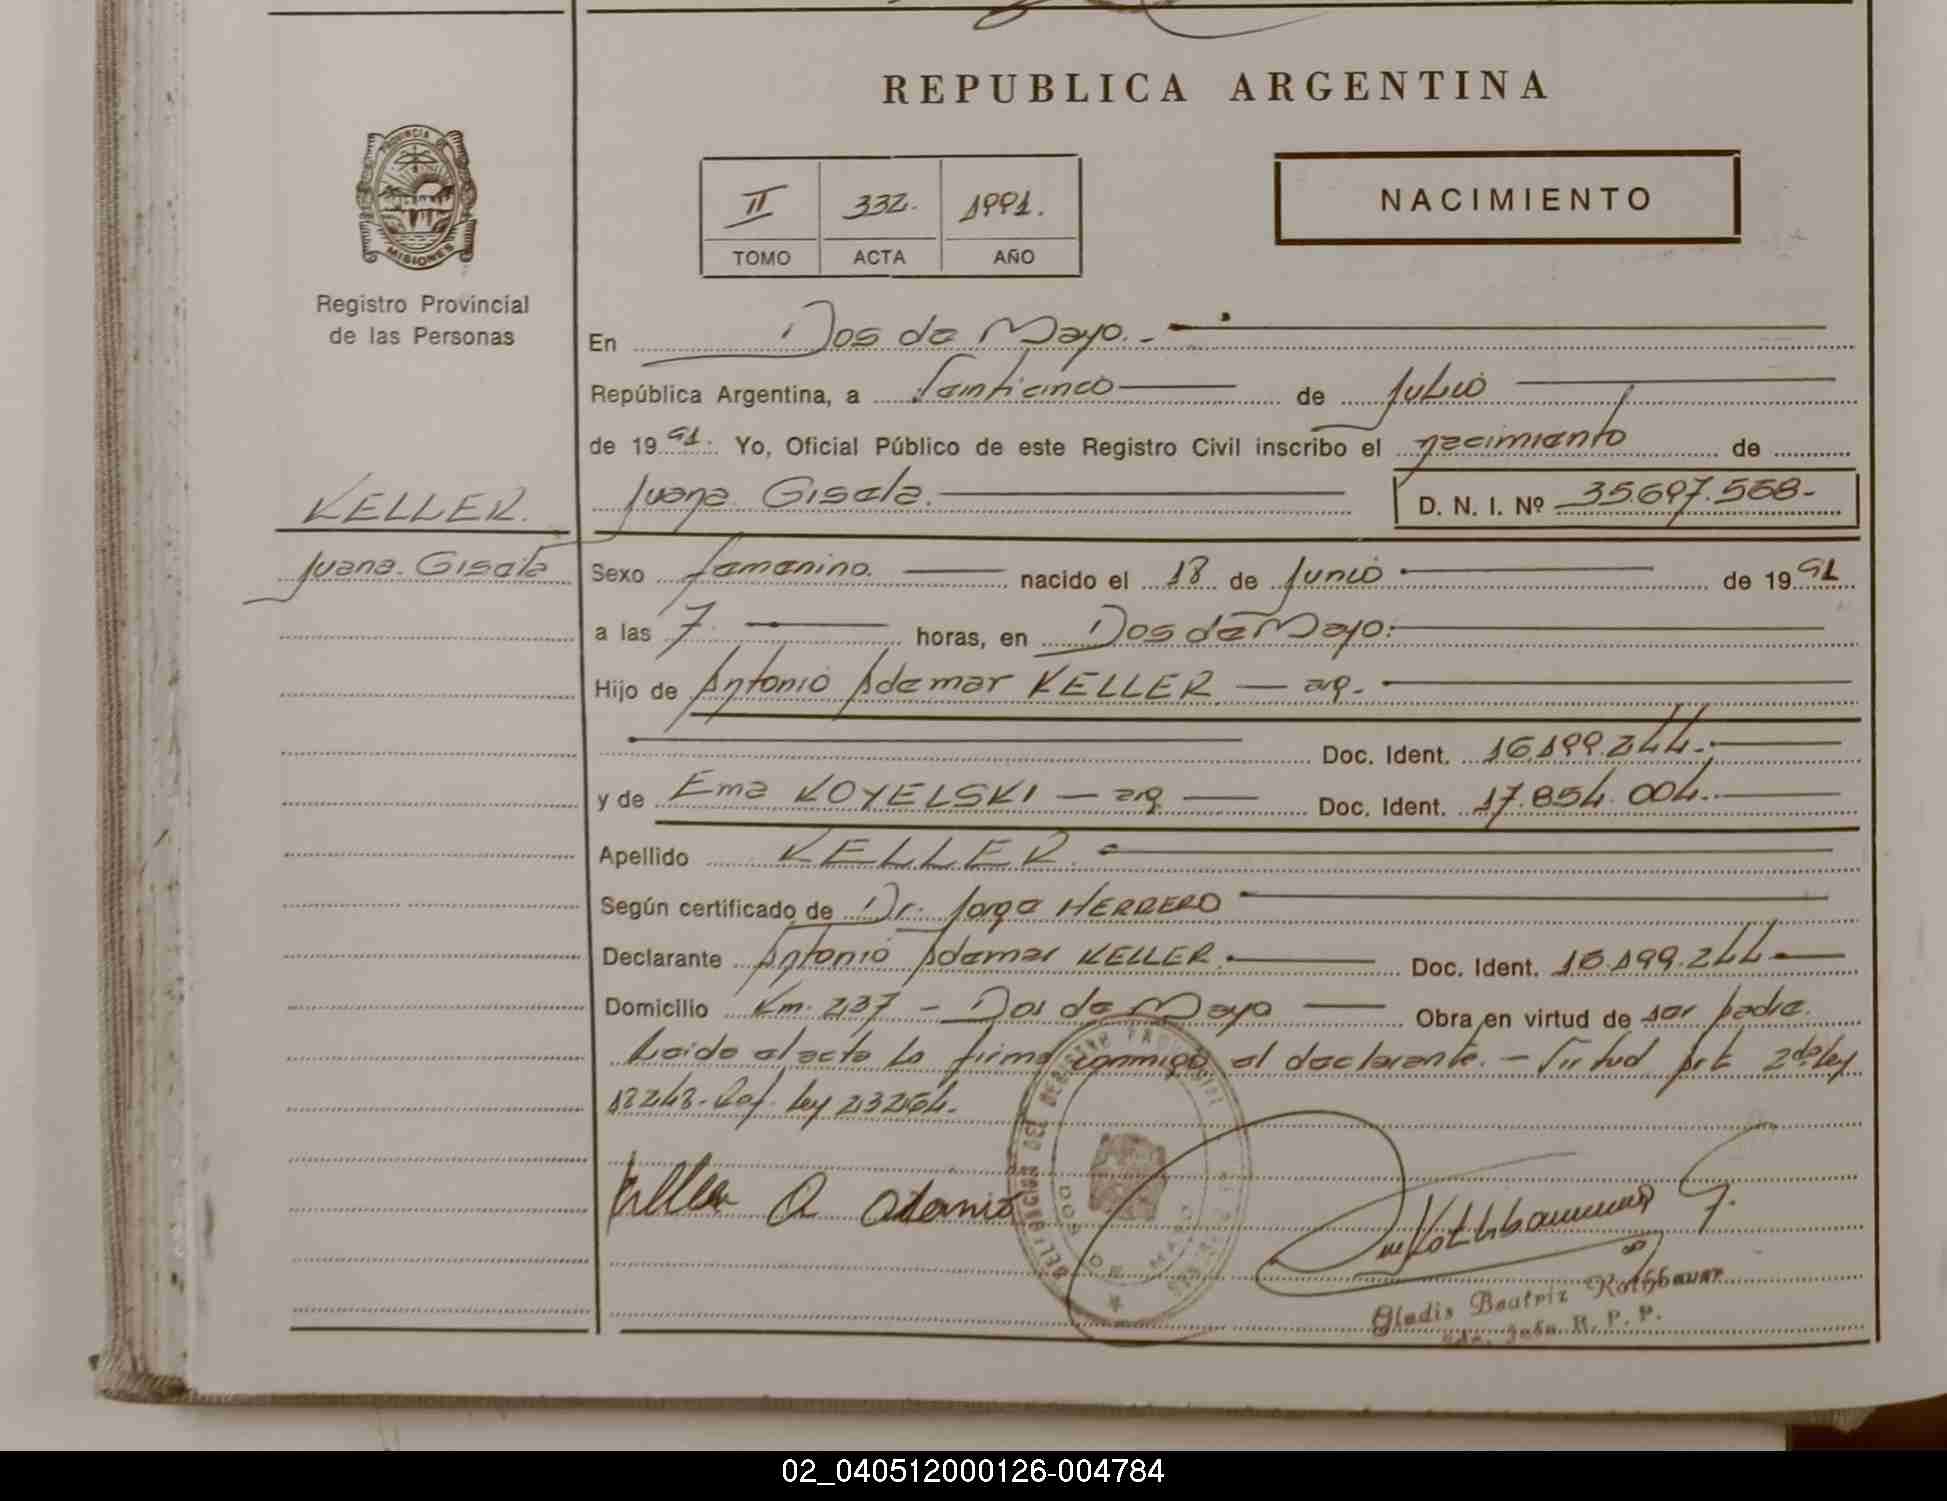 REPUBLICA ARGENTINA
PROVINCIA DE
MISIONES
Registro Provincial
de las Personas
II 332. 1991.
TOMO ACTA AÑO
NACIMIENTO
En Dos de Mayo.-
República Argentina, a Veinticinco de Julio
de 1991. Yo, Oficial Público de este Registro Civil inscribo el nacimiento de
KELLER.
Juana Gisela. D. N. I. Nº 35.697.568-
Juana Gisela
Sexo femenino. nacido el 18 de Junio de 1991
a las 7. horas, en Dos de Mayo.
Hijo de Antonio Ademar KELLER — arg.
Doc. Ident. 16.199.244.
y de Ema KOYELSKI — arg — Doc. Ident. 17.854.004.
Apellido KELLER.
Según certificado de Dr. Jorge HERRERO
Declarante Antonio Ademar KELLER. Doc. Ident. 16.199.244
Domicilio Km. 237 - Dos de Mayo Obra en virtud de ser padre.
Leido el acta la firma conmigo el declarante.- Virtud Art 2do ley
18248- Ley 23264.
Keller A Antonio
DOS DE MAYO
Gladis Beatriz Rothbauer
R. P. P.
02_040512000126-004784